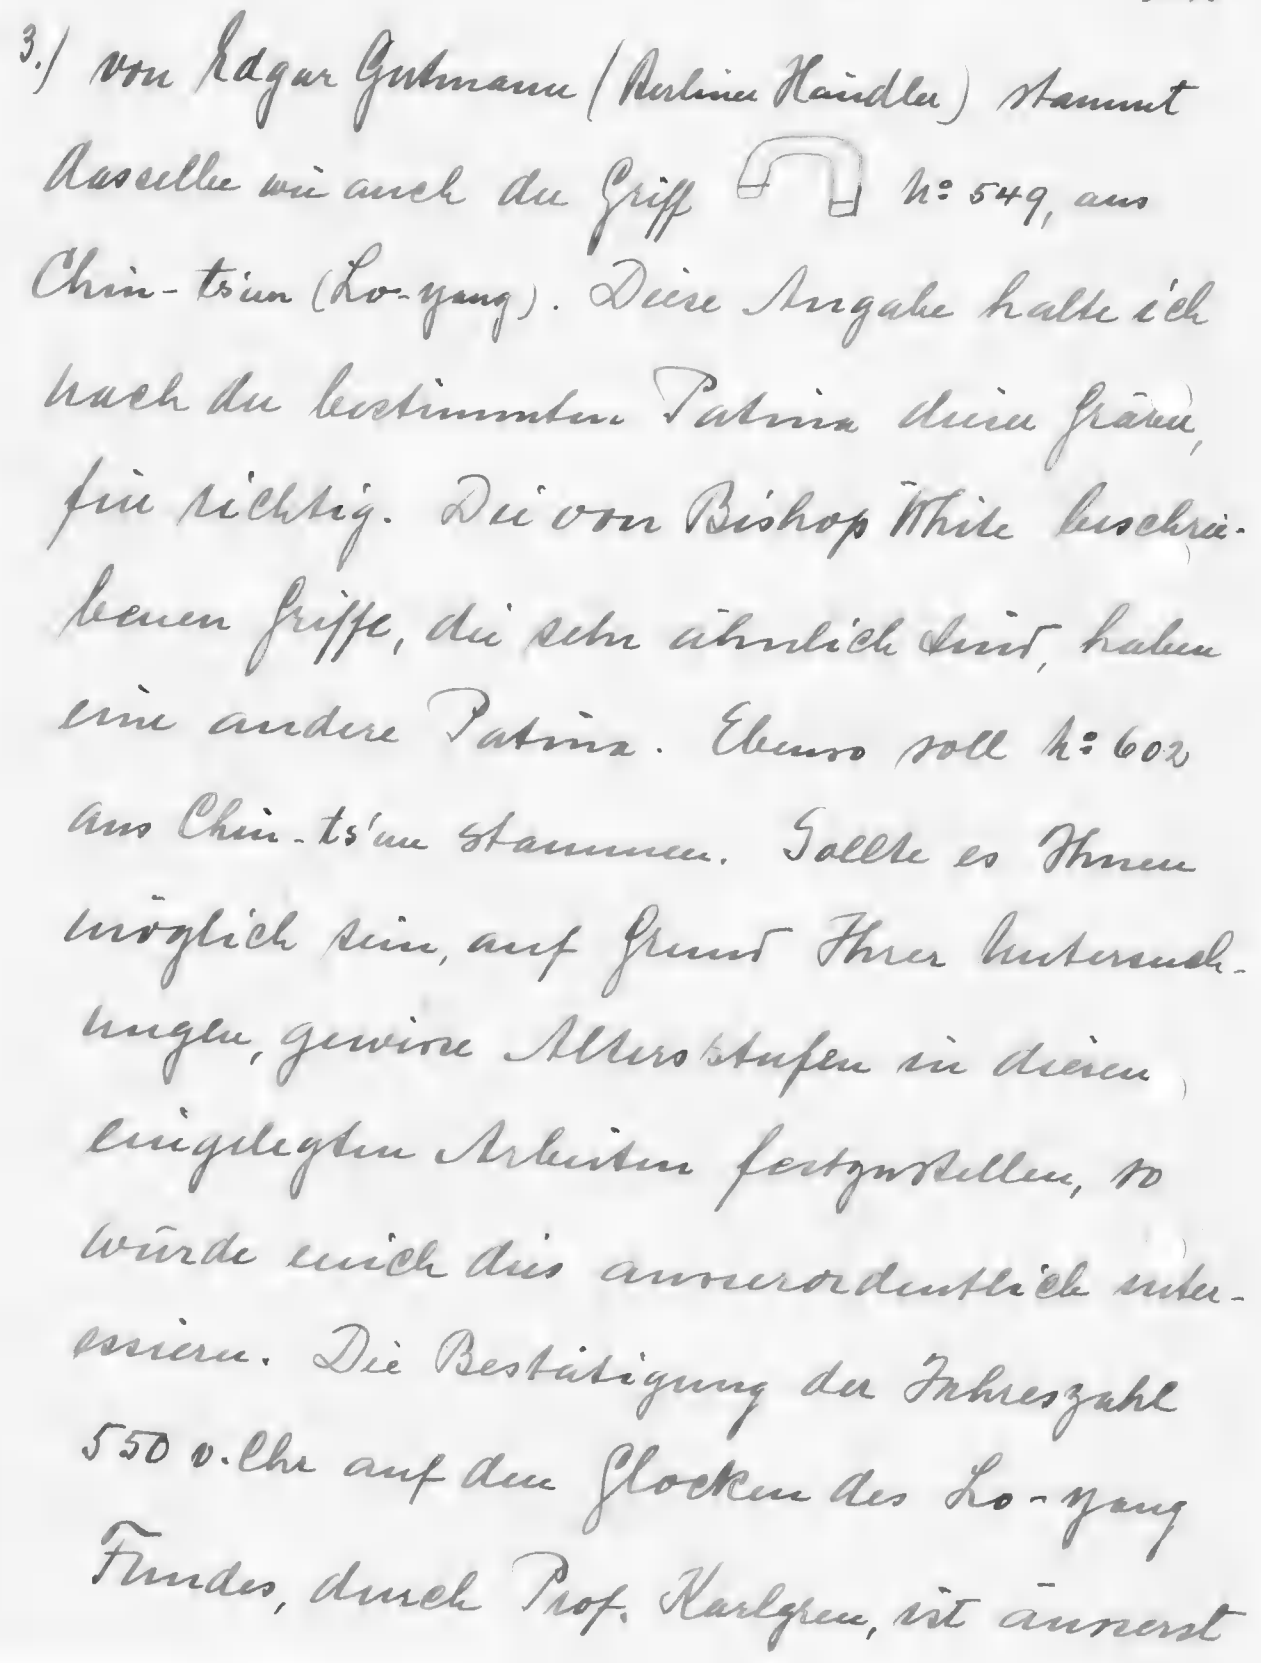 3.) von Edgar Gutmann (Berliner Händler) stammt
dasselbe wie auch der Griff Nº 549, aus
Chin-ts'un (Lo-yang). Diese Angabe halte ich
nach der bestimmten Patina dieser Gräber,
für richtig. Die von Bishop White beschrie-
benen Griffe, die sehr ähnlich sind, haben
eine andere Patina. Ebenso soll Nº 602
aus Chin-ts'un stammen. Sollte es Ihnen
möglich sein, auf Grund Ihrer Untersuch-
ungen, gewisse Altersstufen in diesen
eingelegten Arbeiten festzustellen, so
würde mich dies ausserordentlich inter-
essieren. Die Bestätigung der Jahreszahl
550 v. Chr auf den Glocken des Lo-yang
Fundes, durch Prof. Karlgren, ist äusserst